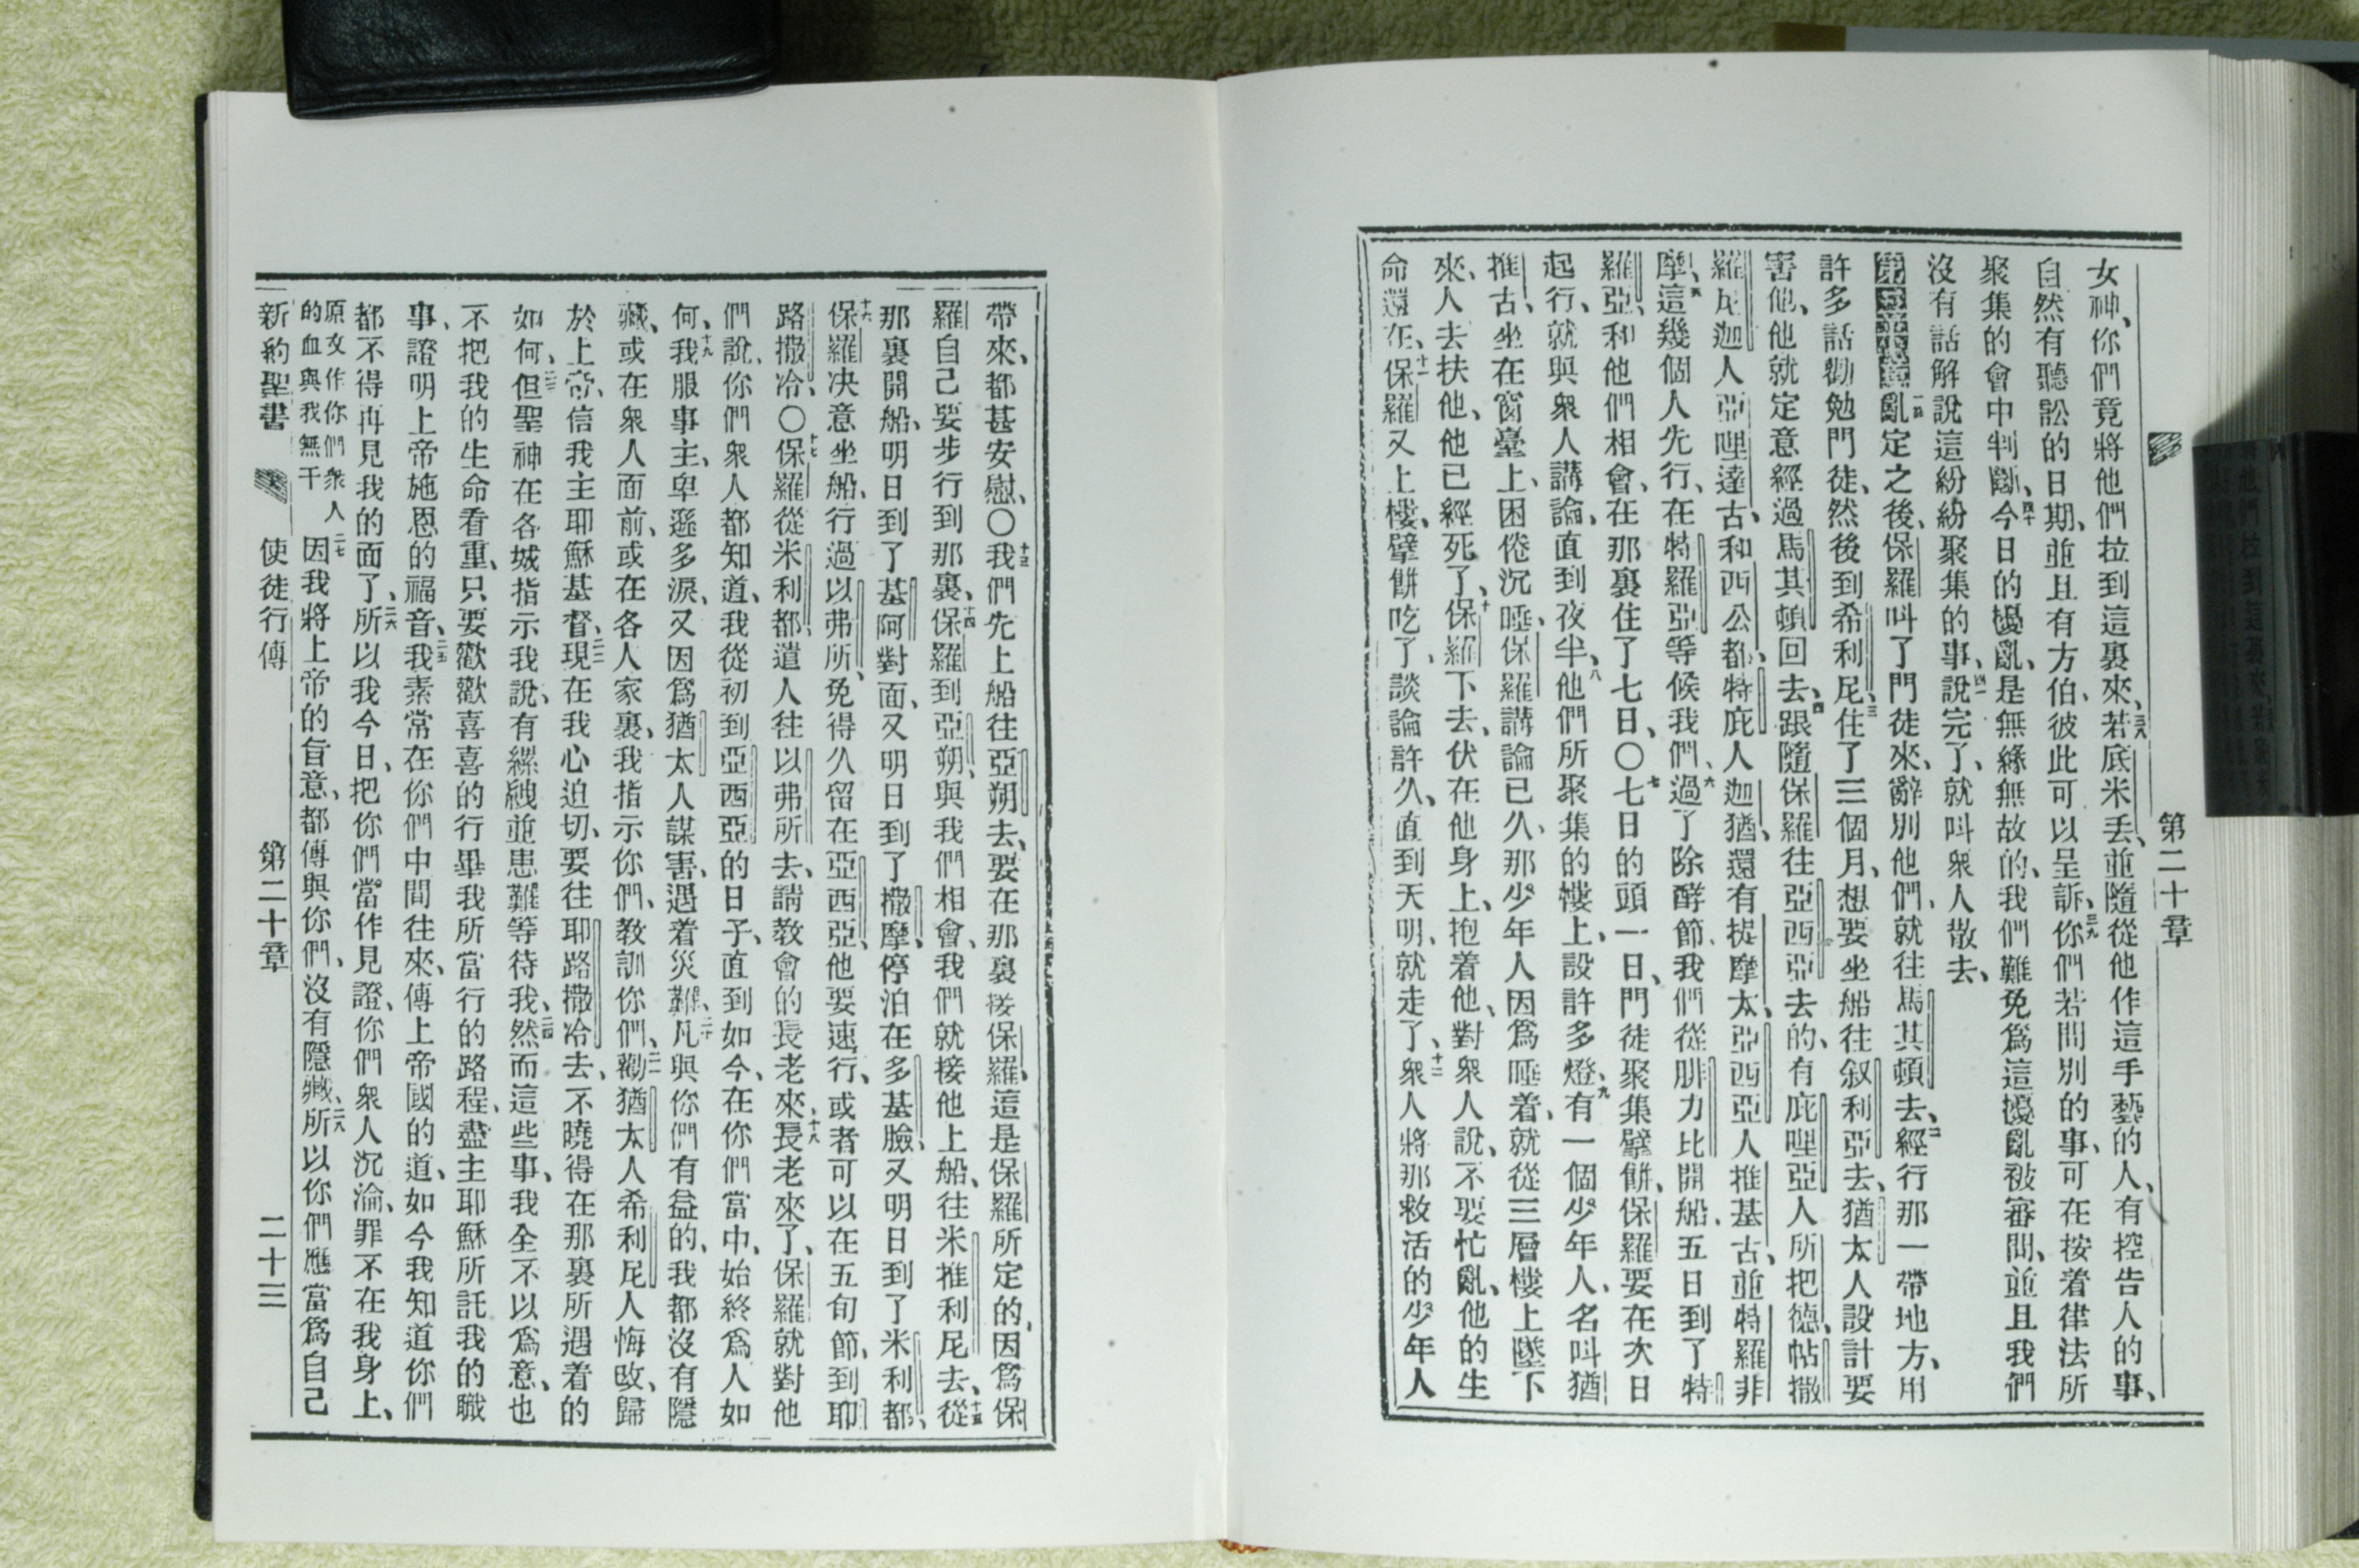 第二十章
女神、你們竟將他們拉到這裏來、三八若底米丢、並隨從他作這手藝的人、有控告人的事、
自然有聽訟的日期、並且有方伯、彼此可以呈訴、三九你們若問別的事、可在按着律法所
聚集的會中判斷、四十今日的擾亂、是無緣無故的、我們難免爲這擾亂被審問、並且我們
沒有話解說這紛紛聚集的事、四一說完了、就叫衆人散去、
第二十章一亂定之後、保羅叫了門徒來、辭別他們、就往馬其頓去、二經行那一帶地方、用
許多話勸勉門徒、然後到希利尼、三住了三個月、想要坐船往叙利亞去、猶太人設計要
害他、他就定意經過馬其頓回去、四跟隨保羅往亞西亞去的、有庇哩亞人所把德、帖撒
羅尼迦人亞哩達古、和西公都、特庇人迦猶、還有提摩太、亞西亞人推基古、並特羅非
摩、五這幾個人先行、在特羅亞等候我們、六過了除酵節、我們從腓力比開船、五日到了特
羅亞、和他們相會、在那裏住了七日、〇七七日的頭一日、門徒聚集擘餅、保羅要在次日
起行、就與衆人講論、直到夜半、八他們所聚集的樓上、設許多燈、九有一個少年人、名叫猶
推古、坐在窗臺上、困倦沉睡、保羅講論已久、那少年人因爲睡着、就從三層樓上墜下
來、人去扶他、他已經死了、十保羅下去、伏在他身上、抱着他、對衆人說、不要忙亂、他的生
命還在、十一保羅又上樓、擘餅吃了、談論許久、直到天明、就走了、十二衆人將那救活的少年人
帶來、都甚安慰、〇十三我們先上船往亞朔去、要在那裏接保羅、這是保羅所定的、因爲保
羅自己要步行到那裏、十四保羅到亞朔、與我們相會、我們就接他上船、往米推利尼去、十五從
那裏開船、明日到了基阿對面、又明日到了撒摩、停泊在多基臉、又明日到了米利都、
十六保羅决意坐船、行過以弗所、免得久留在亞西亞、他要速行、或者可以在五旬節、到耶
路撒冷、〇十七保羅從米利都、遣人往以弗所去、請教會的長老來、十八長老來了、保羅就對他
們說、你們衆人都知道、我從初到亞西亞的日子、直到如今、在你們當中、始終爲人如
何、十九我服事主、卑遜多淚、又因爲猶太人謀害、遇着災難、二十凡與你們有益的、我都沒有隱
藏、或在衆人面前、或在各人家裏、我指示你們、教訓你們、二一勸猶太人希利尼人悔改、歸
於上帝、信我主耶穌基督、二二現在我心迫切、要往耶路撒冷去、不曉得在那裏所遇着的
如何、二三但聖神在各城指示我說、有縲絏並患難等待我、二四然而這些事、我全不以爲意、也
不把我的生命看重、只要歡歡喜喜的行畢我所當行的路程、盡主耶穌所託我的職
事、證明上帝施恩的福音、二五我素常在你們中間往來、傳上帝國的道、如今我知道你們
都不得再見我的面了、二六所以我今日、把你們當作見證、你們衆人沉淪、罪不在我身上、
原文作你們衆人的血與我無干二七因我將上帝的旨意、都傳與你們、沒有隱藏、二八所以你們應當爲自己
新約聖書 使徒行傳 第二十章 二十三